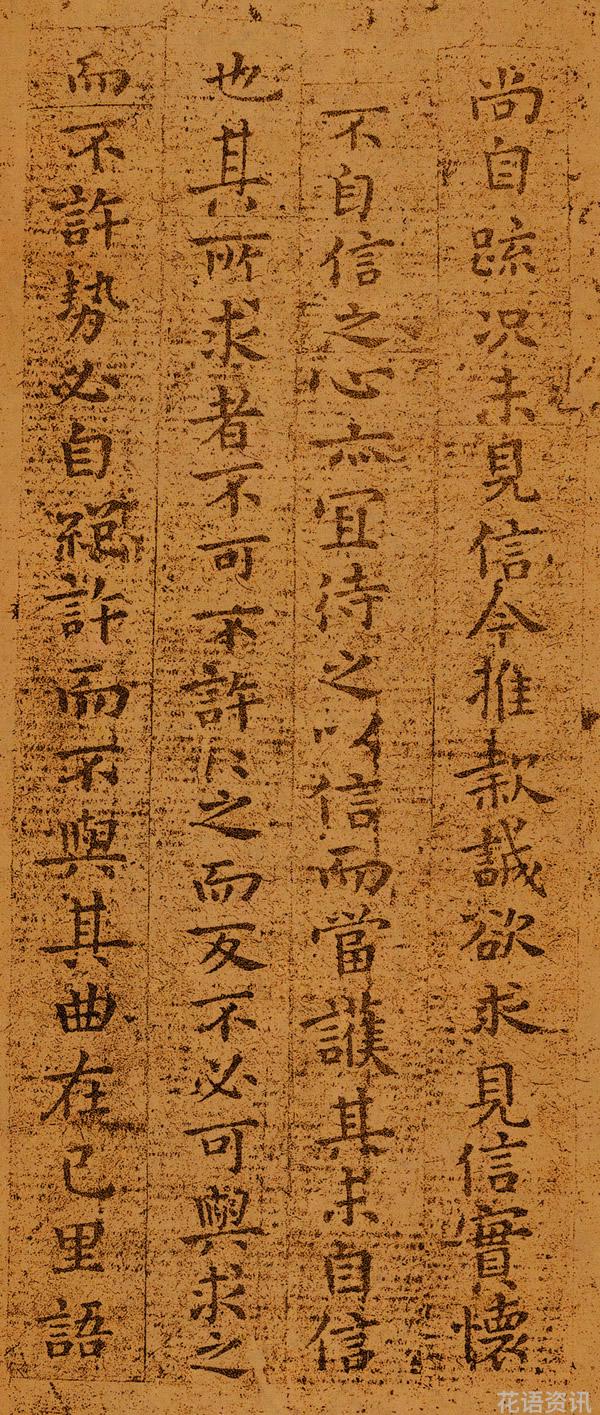 尚自疏況未見信今推款誠欲求見信實懷
不自信之心亦宜待之以信而當護其未自信
也其所求者不可不許許之而反不必可與求之
而不許勢必自絕許而不與其曲在己里語
花语资讯